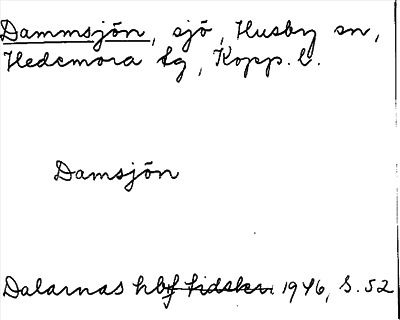 Dammsjön, sjö, Husby sn,
Hedemora tg, Kopp. l.
Damsjön
Dalarnas hbf tidskr. 1946, s. 52